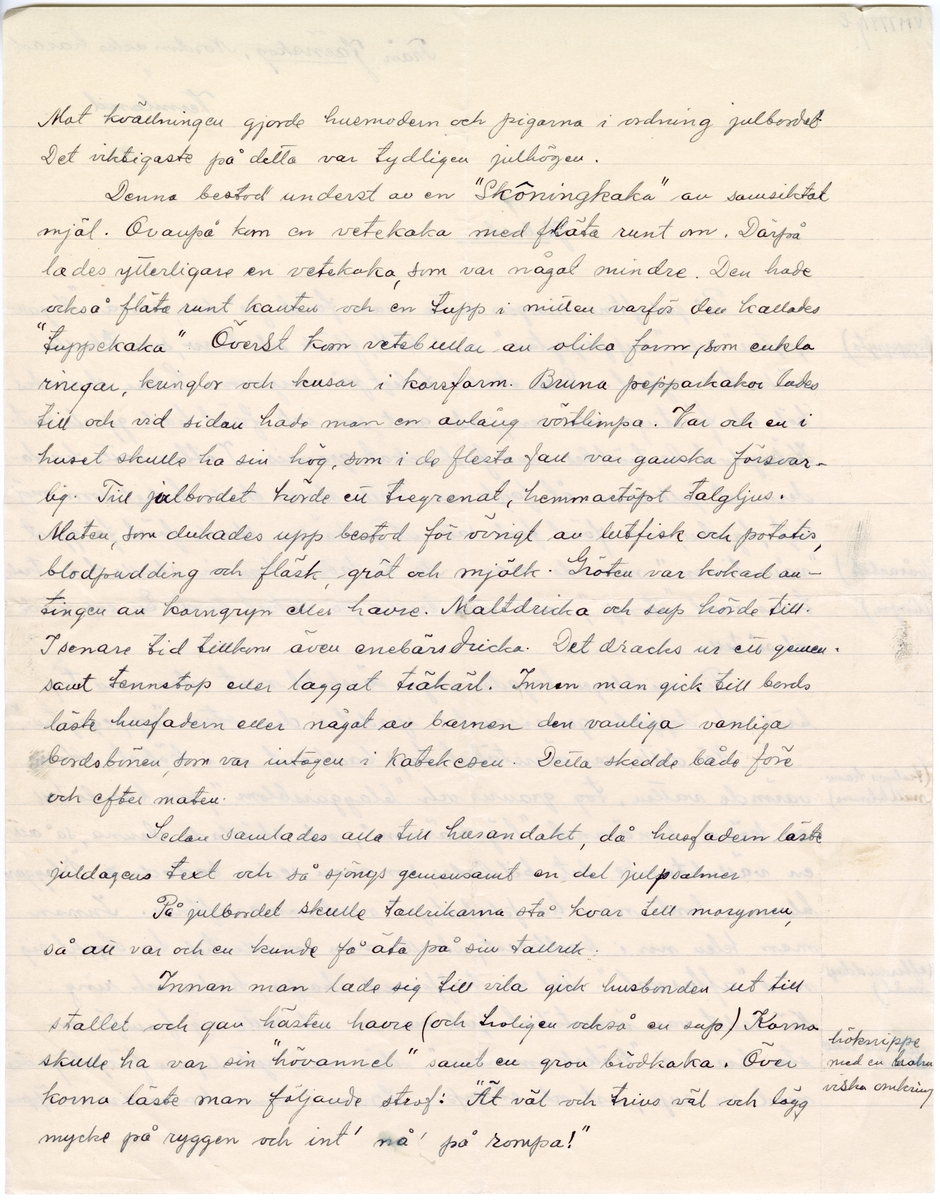 Mot kvällningen gjorde husmodern och pigarna i ordning julbordet
Det viktigaste på detta var tydligen julhögen.
Denna bestod underst av en "Skôningkaka" av samsiktat
mjäl. Ovanpå kom en vetekaka med fläta runt om. Därpå
lades ytterligare en vetekaka, som var något mindre. Den hade
också fläta runt kanten och en tupp i mitten varför den kallades
"tuppekaka". Överst kom vetebullar av olika form, som enkla
ringar, kringlor och kusar i korsform. Bruna pepparkakor lades
till och vid sidan hade man en avlång vörtlimpa. Var och en i
huset skulle ha sin hög, som i de flesta fall var ganska försvar-
lig. Till julbordet hörde ett tregrenat, hemmastöpt talgljus.
Maten, som dukades upp bestod för övrigt av lutfisk och potatis,
blodpudding och fläsk, gröt och mjölk. Gröten var kokad an-
tingen av korngryn eller havre. Maltdricka och sup hörde till.
I senare tid tillkom även enebärsdricka. Det dracks ur ett gemen-
samt tennstop eller laggat träkärl. Innan man gick till bords
läste husfadern eller något av barnen den vanliga vanliga
bordsbönen, som var intagen i katekesen. Detta skedde både före
och efter maten.
Sedan samlades alla till husandakt, då husfadern läste
juldagens text och så sjöngs gemensamt en del julpsalmer
På julbordet skulle tallrikarna stå kvar till morgonen,
så att var och en kunde få äta på sin tallrik.
Innan man lade sig till vila gick husbonden ut till
stallet och gav hästen havre (och troligen också en sup) Korna
skulle ha var sin "hövannel" samt en grov brödkaka. Över
korna läste man följande strof: "Ät väl och trivs väl och lägg
mycke på ryggen och int' nå' på rompa!"
höknippe
med en
viska omkring